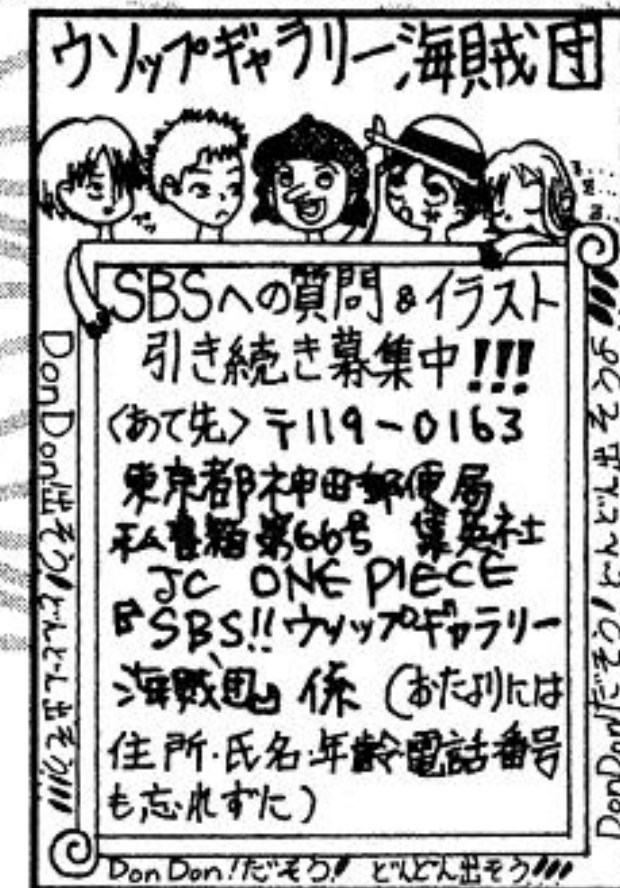 ウソップギャラリー海賊団
SBSへの質問&イラスト
引き続き募集中!!!
〈あて先〉〒119-0163
東京都神田郵便局
私書箱第66号 集英社
JC ONE PIECE
『SBS!!ウソップギャラリー
海賊団』係(おたよりには
住所・氏名・年齢・電話番号
も忘れずに)
DonDon出そう!どんどん出そう!!!
DonDon!だそう! どんどん出そう!!!
DonDonだそう!どんどん出そう